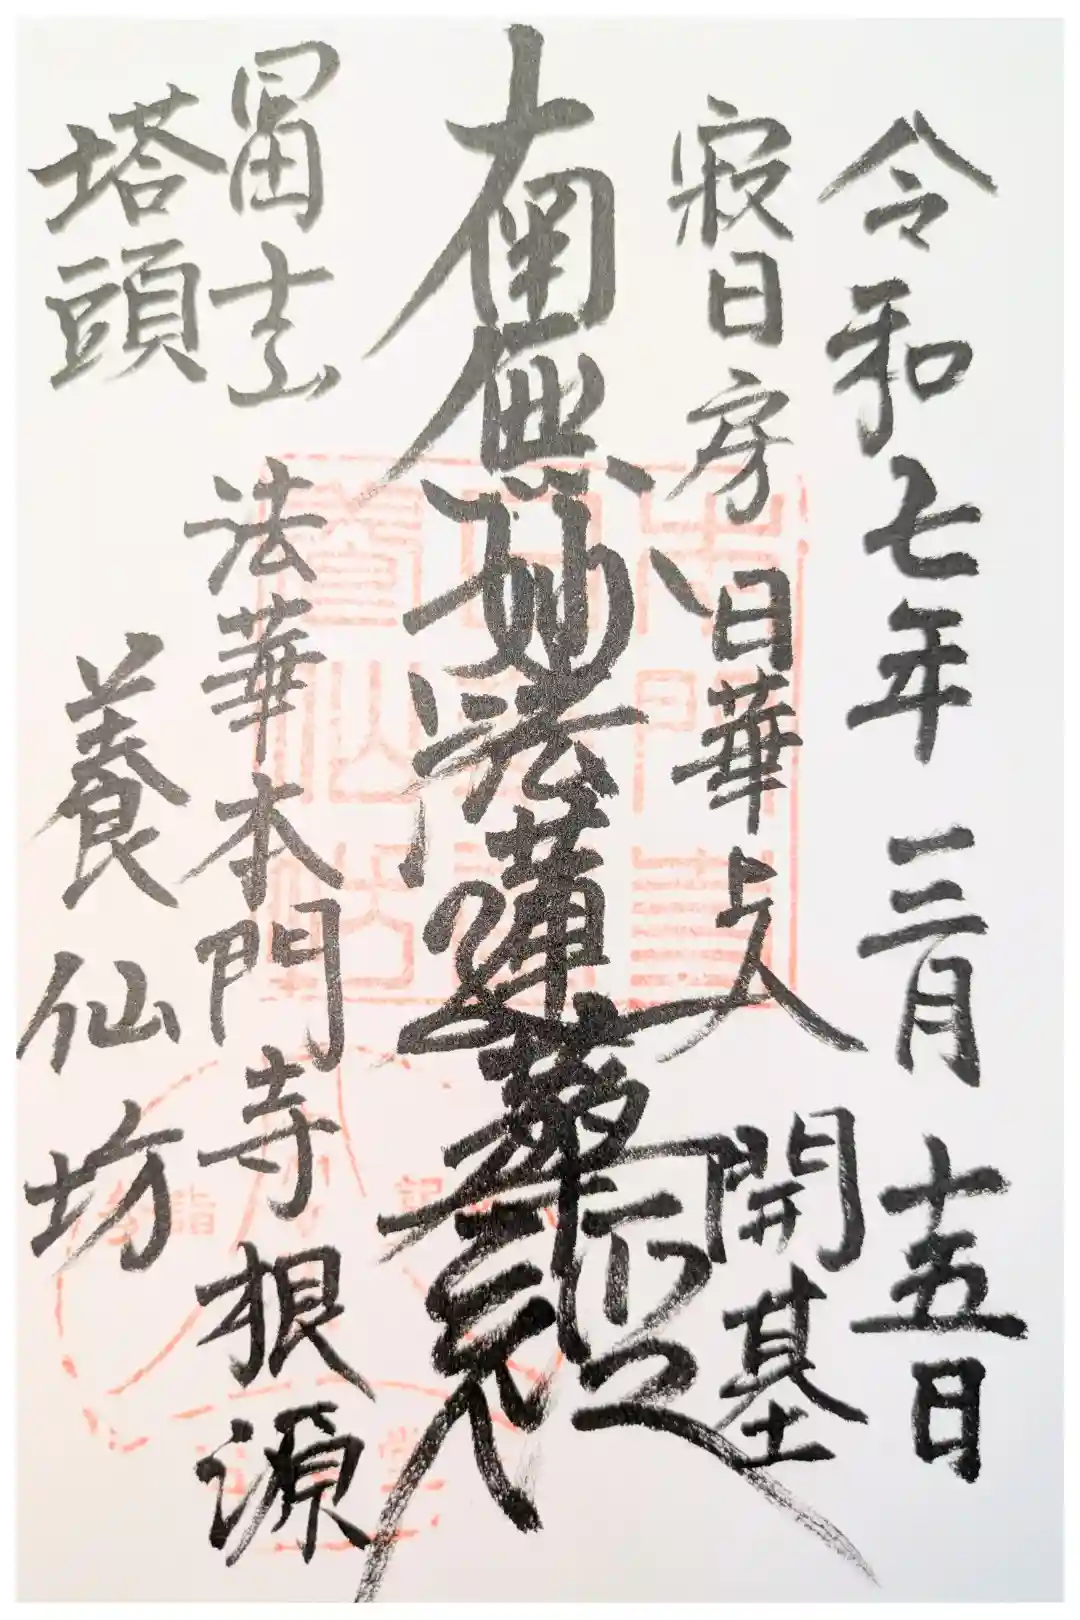 令和七年三月十五日
寂日房日華上人 開基
南無妙法蓮華経
富士山 法華本門寺根源
塔頭 養仙坊